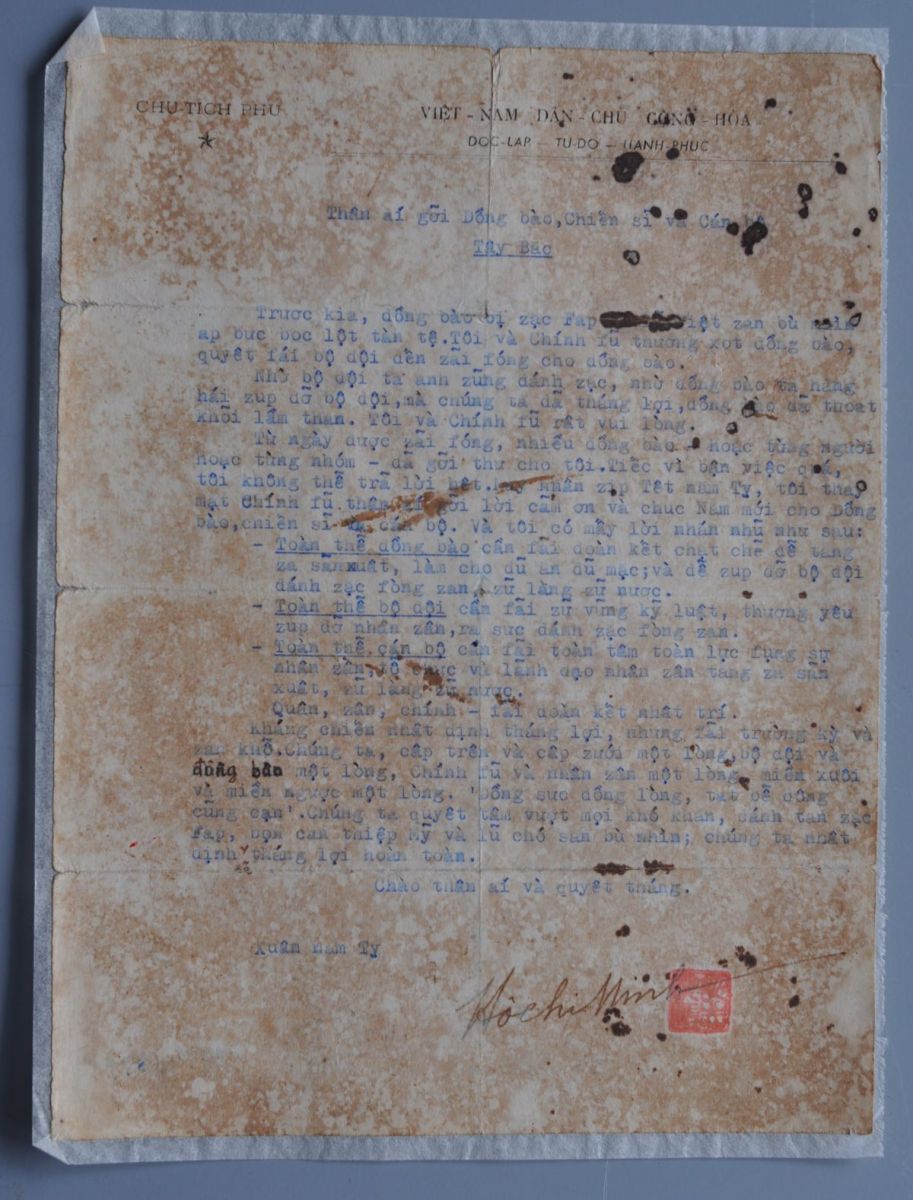 CHU-TICH PHU
VIỆT - NAM DÂN - CHỦ CỘNG - HÒA
DOC-LAP — TU-DO — HANH-PHUC
Thân aí gỡi Đồng bào,Chiến sĩ và Cán bộ
Tây Bắc
Trước kia, đồng bào bị zặc Fáp việt zan bù nhìn
áp bức bóc lột tàn tệ.Tôi và Chính fũ thương xót đồng bào,
quyết fái bộ đội đến zãi fóng cho đồng bào.
Nhờ bộ đội ta anh zũng đánh zặc, nhờ đồng bào ta hăng
hái zúp đỡ bộ đội,mà chúng ta đã thắng lợi,đồng bào đã thoát
khỏi lầm than. Tôi và Chính fũ rất vui lòng.
Từ ngày được zãi fóng, nhiều đồng bào - hoặc từng người
hoặc từng nhóm - đã gỡi thư cho tôi.Tiếc vì bận việc quá,
tôi không thể trã lời hết. nhân zịp Tết năm Tỵ, tôi thay
mặt Chính fũ thân aí gỡi lời cảm ơn và chúc Năm mới cho Đồng
bào,chiến sĩ và cán bộ. Và tôi có mấy lời nhắn nhũ như sau:
- Toàn thể đồng bào cần fãi đoàn kết chặt chẽ để tăng
za sãn xuất, làm cho đũ ăn đũ mặc;và để zúp đỡ bộ đội
đánh zặc fòng zan, zữ làng zữ nước.
- Toàn thể bộ đội cần fãi zữ vững kỹ luật, thương yêu
zúp đỡ nhân zân,ra sức đánh zặc fòng zan.
- Toàn thể cán bộ cần fãi toàn tâm toàn lực fụng sự
nhân zân,tổ chức và lãnh đạo nhân zân tăng za sãn
xuất, zữ làng zữ nước.
Quân, zân, chính - fãi đoàn kết nhất trí.
Kháng chiến nhất định thắng lợi, nhưng fãi trường kỳ và
zan khổ.Chúng ta, cấp trên và cấp zưới một lòng,bộ đội và
đồng bào một lòng, Chính fũ và nhân zân một lòng, miền xuôi
và miền ngược một lòng. 'Đồng sức đồng lòng, tát bể đông
cũng cạn'.Chúng ta quyết tâm vượt mọi khó khăn, đánh tan zặc
Fáp, bọn can thiệp Mỹ và lũ chó săn bù nhìn; chúng ta nhất
định sẽ thắng lợi hoàn toàn.
Chào thân aí và quyết thắng.
Xuân năm Tỵ
Hồ Chí Minh